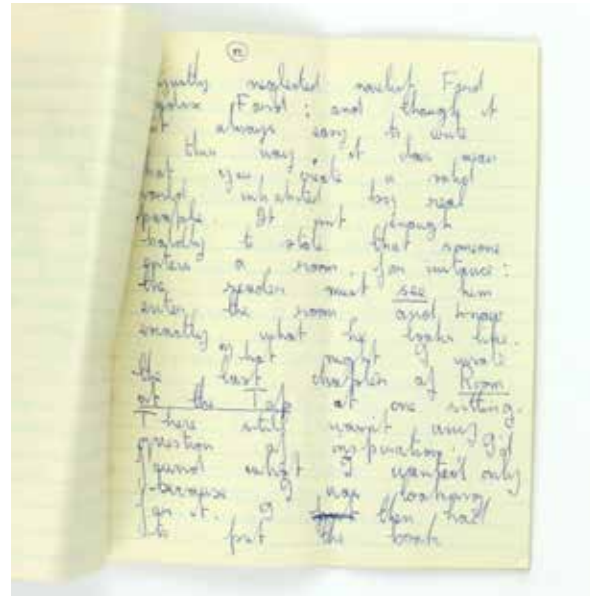 neglected novelist Ford
Ford; and though it
always easy to write
this way, it does mean
that you create a solid
world inhabited by real
people. It isn't enough
baldly to state that someone
enters a room, for instance:
the reader must see him
enter the room and know
exactly what he looks like.
That night I wrote
the last chapter of Room
at the Top at one sitting.
There still wasn't any
question of inspiration; I'd
found what I wanted only
because I was looking
for it. I then had
to put the book